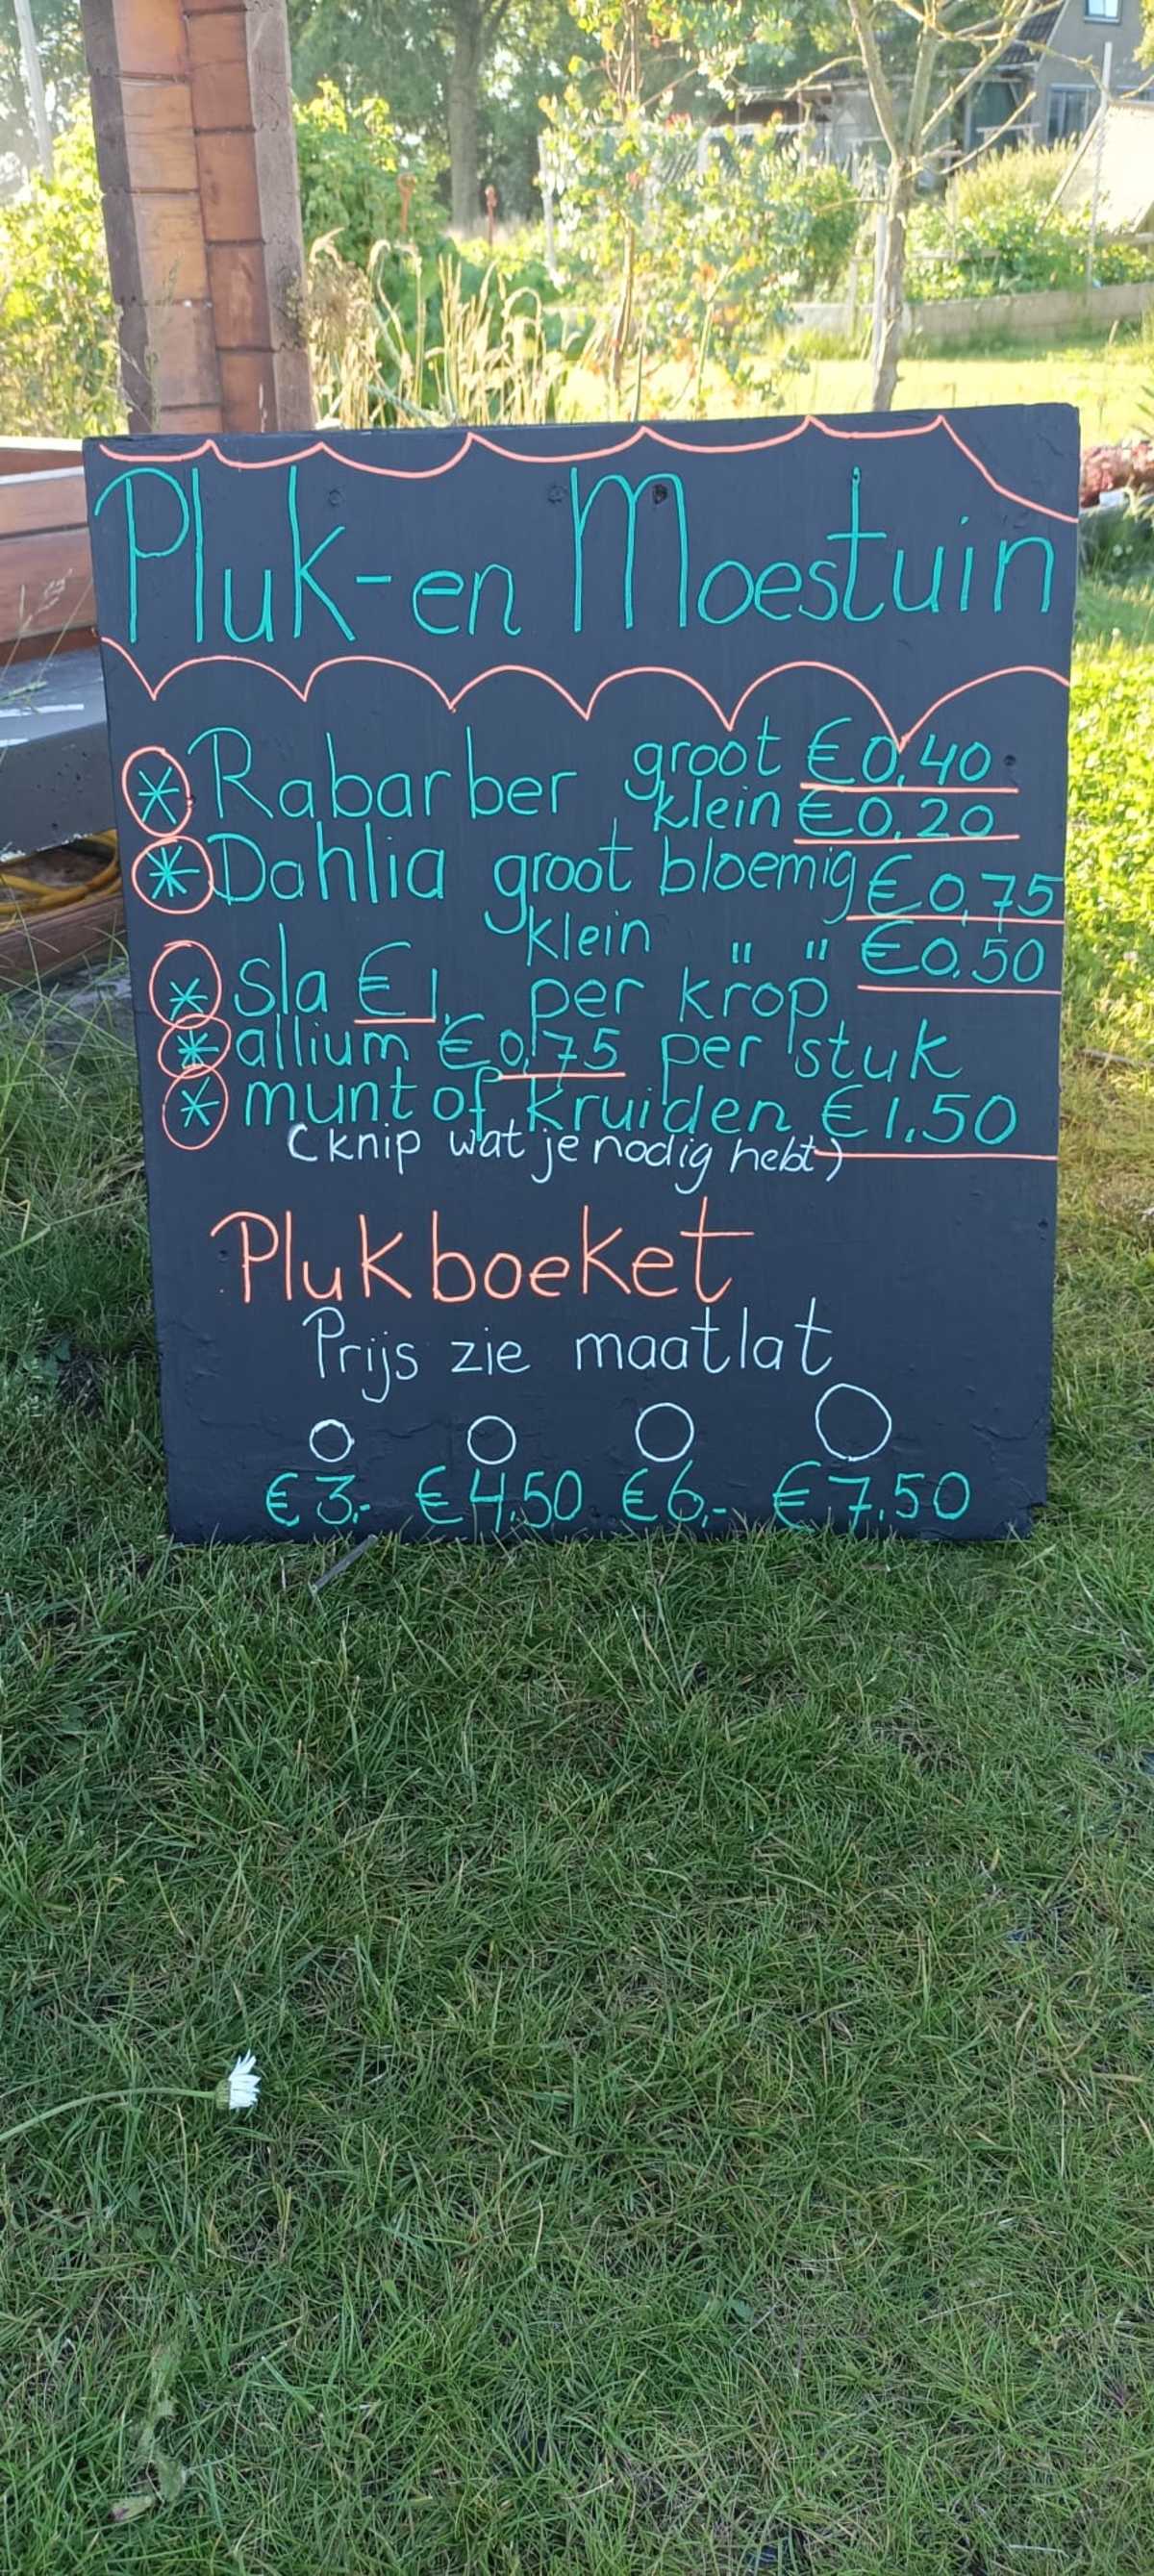 Pluk-en Moestuin
* Rabarber groot €0,40
klein €0,20
* Dahlia groot bloemig €0,75
klein " " €0,50
* Sla €1,- per krop
* allium €0,75 per stuk
* munt of kruiden €1,50
(knip wat je nodig hebt)
Plukboeket
Prijs zie maatlat
€3,- €4,50 €6,- €7,50